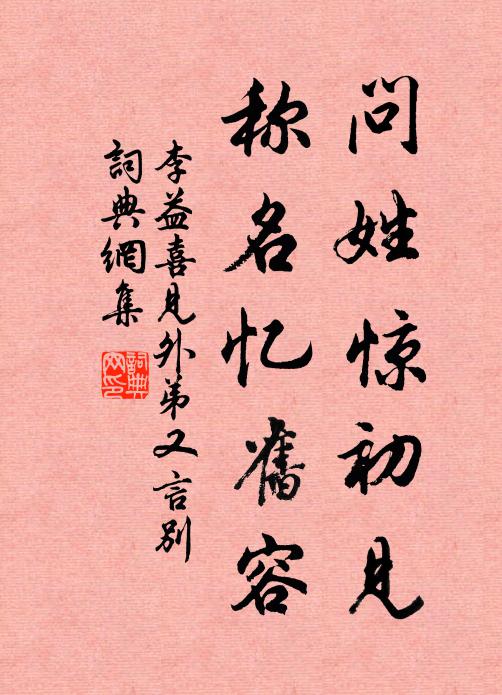 问姓惊初见
称名忆舊容
李益喜見外弟又言別
詞典網集
詞典網印